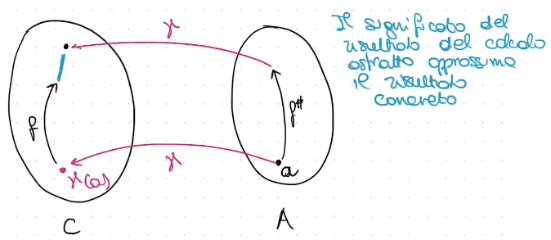 γ
Il significato del
risultato del calcolo
astratto approssima
il risultato
concreto
f
f#
γ
γ(a)
a
C
A